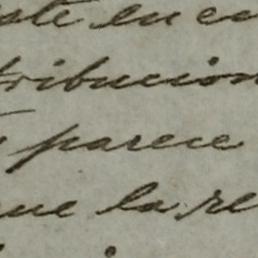 este en cu
tribucion
parece
que la re